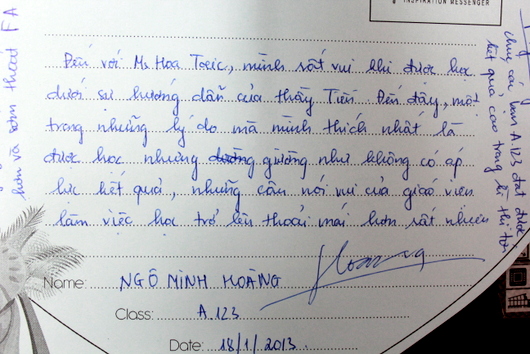 INSPIRATION MESSENGER
Đến với Ms Hoa Toeic, mình rất vui khi được học
dưới sự hướng dẫn của thầy Tiến. Đến đây, một
trong những lý do mà mình thích nhất là
được học nhưng gường như không có áp
lực kết quả, những câu nói vui của giáo viên
làm việc học trở lên thoải mái hơn rất nhiều
Name: NGÔ MINH HOÀNG
Hoang
Class: A.123
Date: 18/1/2013
chúc các bạn A.123 đạt được
kết quả cao trong kỳ thi tới
hơn và sớm thoát FA